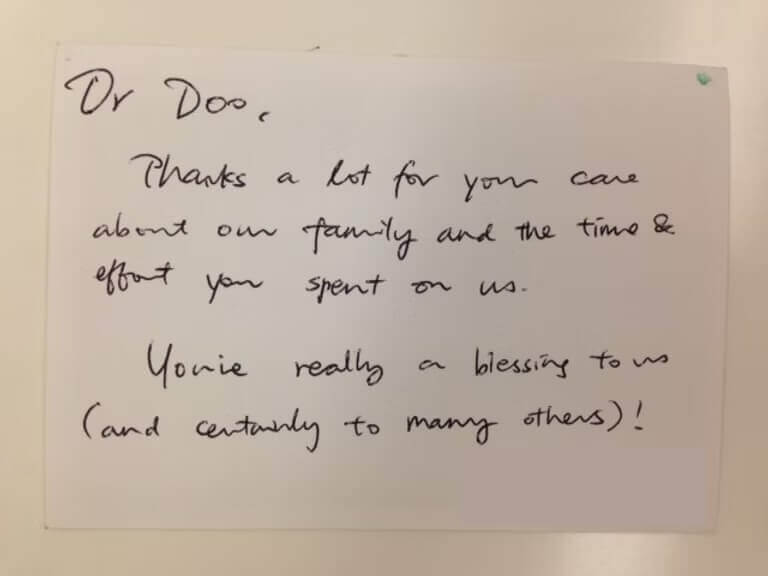 Dr Doo,
Thanks a lot for your care
about our family and the time &
effort you spent on us.
You're really a blessing to us
(and certainly to many others)!